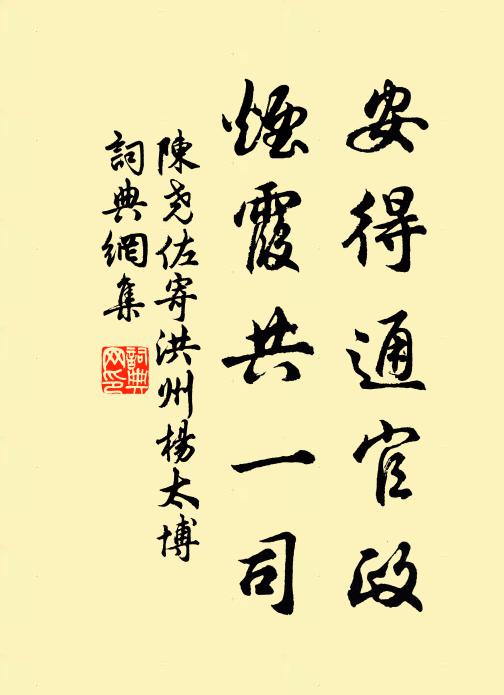 安得通官政
煙霞共一司
陳尧佐寄洪州楊太博
詞典網集
詞典網印